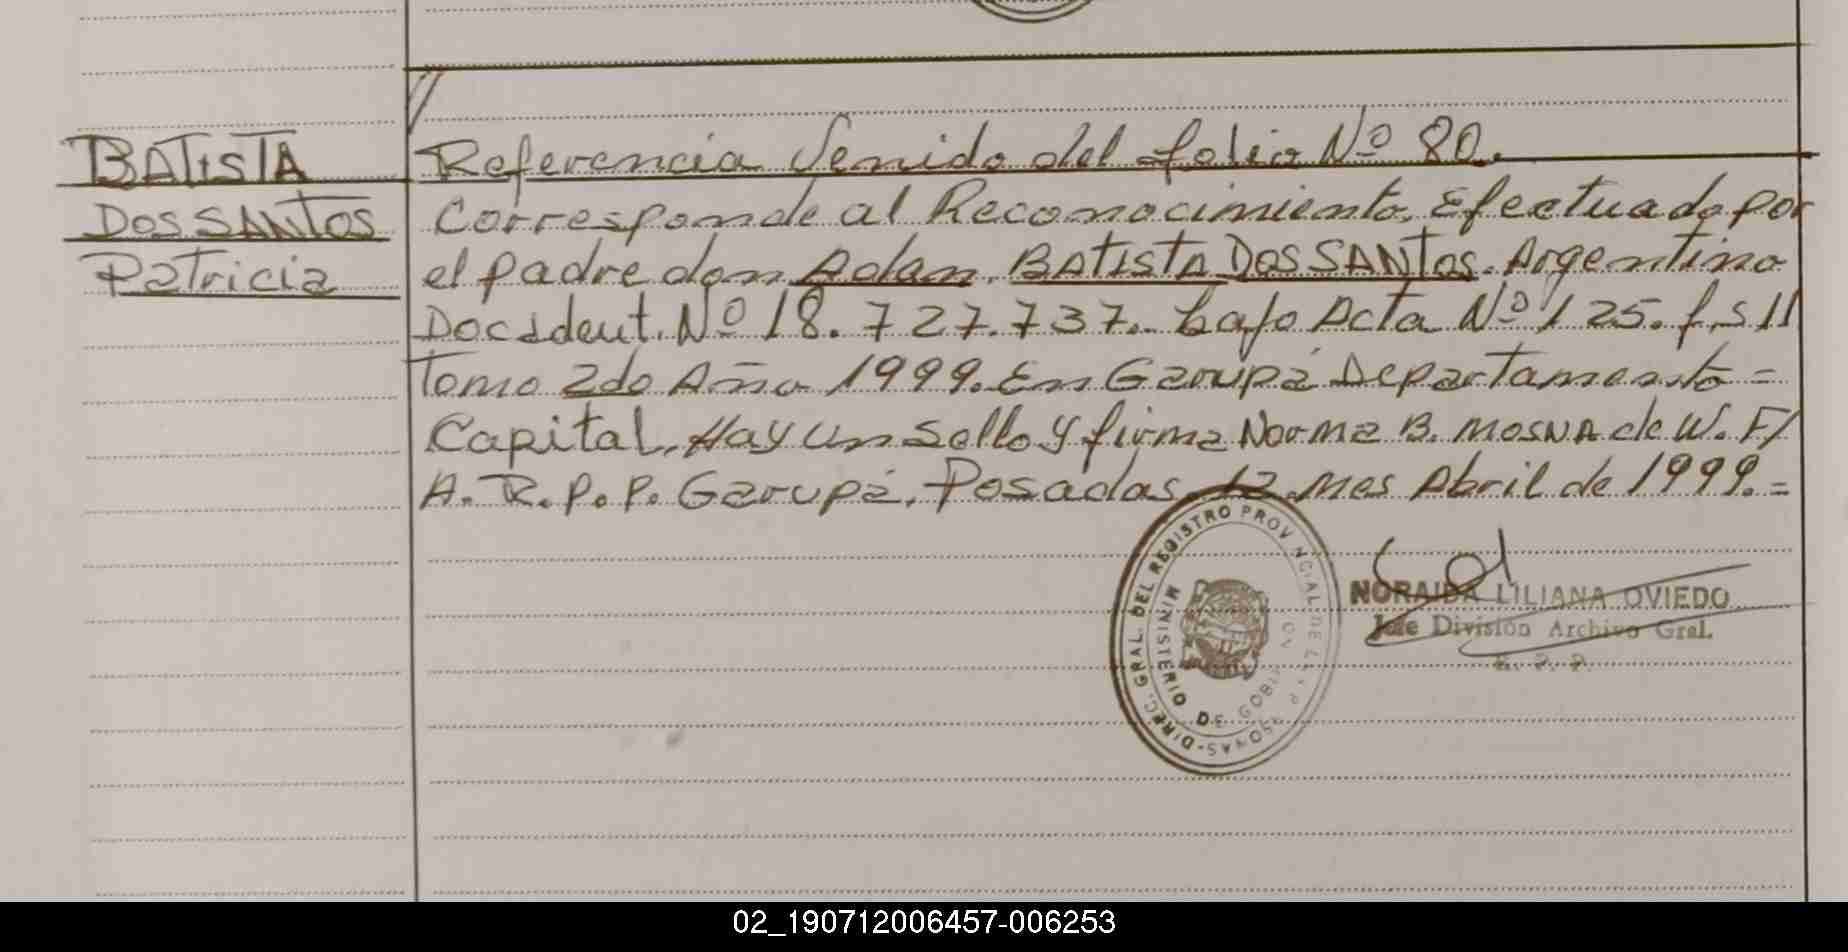 BATISTA
DOS SANTOS
Patricia
Referencia Venido del folio Nº 80.
Corresponde al Reconocimiento. Efectuado por
el padre don Adan. BATISTA DOS SANTOS. Argentino
Doc. Ident. Nº 18.727.737. bajo Acta Nº 125. f.s 11
Tomo 2do Año 1999. En Garupá Departamento =
Capital. Hay un sello y firma Norma B. MOSNA de W. F/
A. R. P. P. Garupá. Posadas. 12. mes Abril de 1999. =
DIREC. GRAL. DEL REGISTRO PROVINCIAL DE LAS PERSONAS-
MINISTERIO DE GOBIERNO
NORAIDA LILIANA OVIEDO
Jefe División Archivo Gral.
R. P. P.
02_190712006457-006253